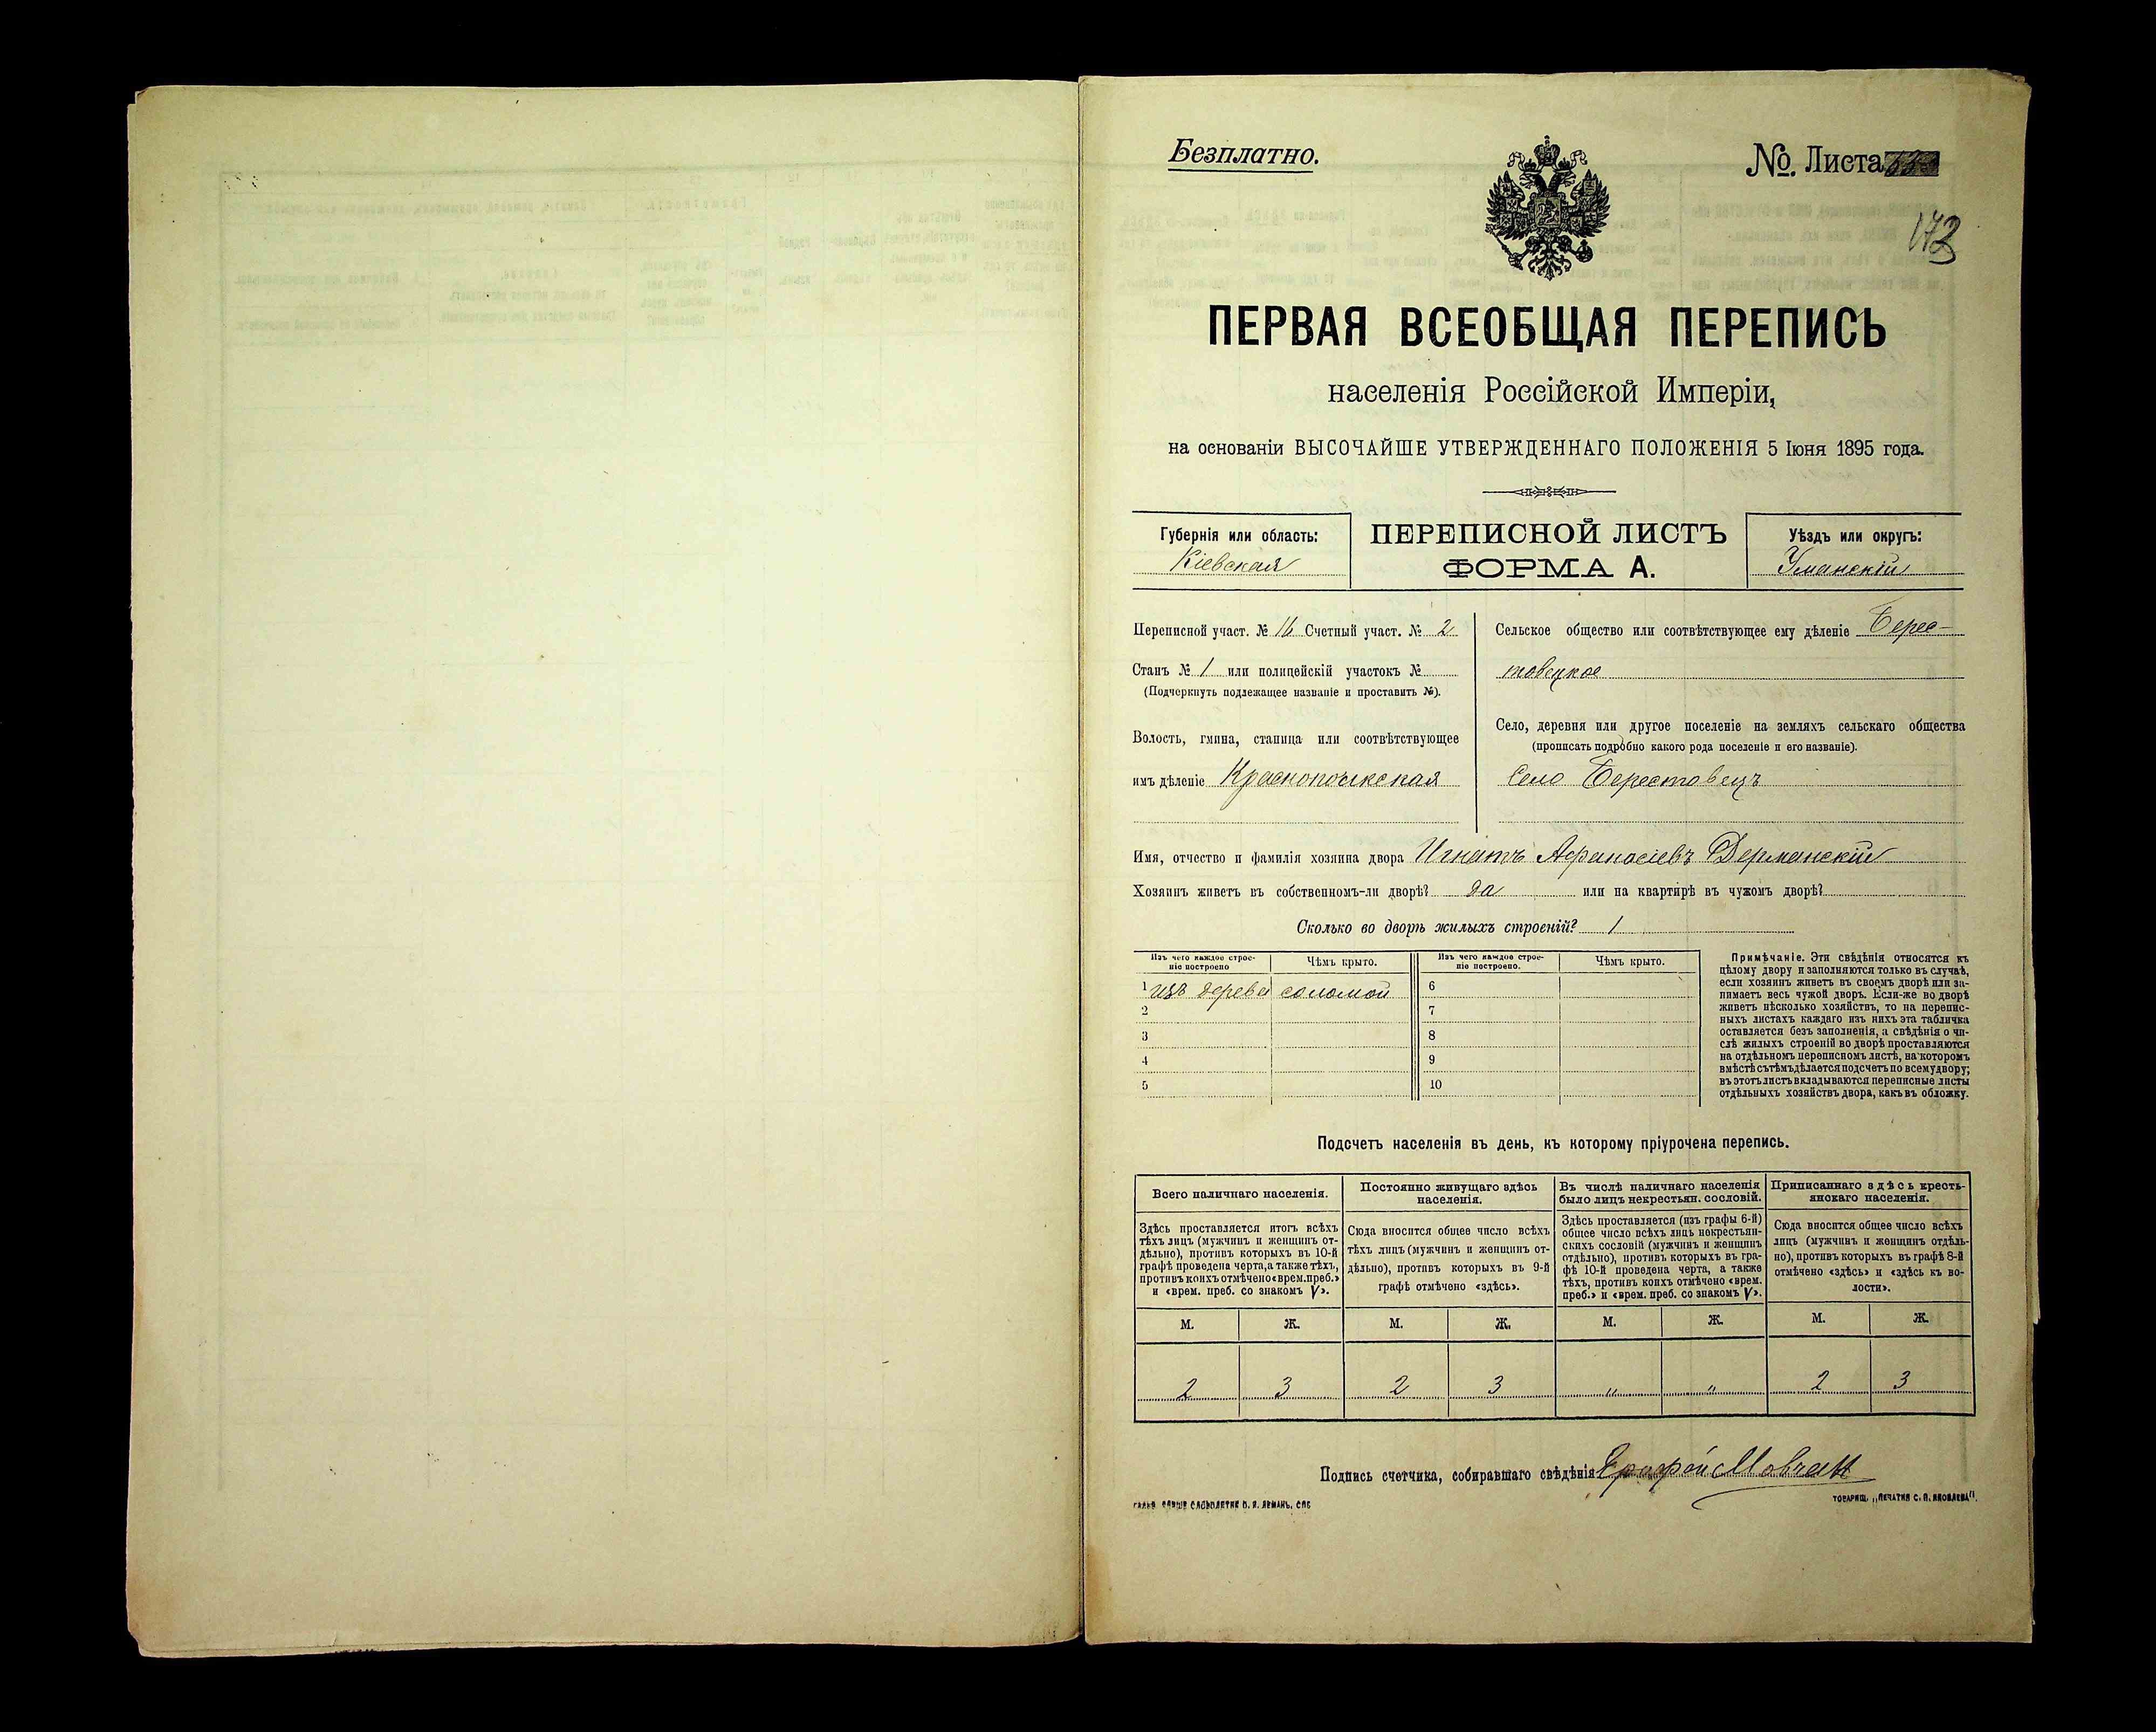 Безплатно.
№. Листа
173
ПЕРВАЯ ВСЕОБЩАЯ ПЕРЕПИСЬ
населенія Россійской Имперіи,
на основаніи ВЫСОЧАЙШЕ УТВЕРЖДЕННАГО ПОЛОЖЕНІЯ 5 Іюня 1895 года.
Губернія или область:
Кіевская
ПЕРЕПИСНОЙ ЛИСТЪ
ФОРМА А.
Уѣздъ или округъ:
Уманскій
Переписной участ. № 16 Счетный участ. № 2
Станъ № 1 или полицейскій участокъ №
(Подчеркнуть подлежащее названіе и проставить №).
Волость, гмина, станица или соотвѣтствующее
имъ дѣленіе Краснопольская
Сельское общество или соотвѣтствующее ему дѣленіе Берес-
товецкое
Село, деревня или другое поселеніе на земляхъ сельскаго общества
(прописать подробно какого рода поселеніе и его названіе).
Село Берестовецъ
Имя, отчество и фамилія хозяина двора Игнатъ Афанасіевъ Держанскій
Хозяинъ живетъ въ собственномъ-ли дворѣ? да или на квартирѣ въ чужомъ дворѣ?
Сколько во дворѣ жилыхъ строеній? 1
Изъ чего каждое строе-
ніе построено
Чѣмъ крыто.
Изъ чего каждое строе-
ніе построено.
Чѣмъ крыто.
1 изъ дерева соломой 6
2 7
3 8
4 9
5 10
Примѣчаніе. Эти свѣдѣнія относятся къ
цѣлому двору и заполняются только въ случаѣ,
если хозяинъ живетъ въ своемъ дворѣ или за-
нимаетъ весь чужой дворъ. Если-же во дворѣ
живетъ нѣсколько хозяйствъ, то на перепис-
ныхъ листахъ каждаго изъ нихъ эта табличка
оставляется безъ заполненія, а свѣдѣнія о чи-
слѣ жилыхъ строеній во дворѣ проставляются
на отдѣльномъ переписномъ листѣ, на которомъ
вмѣстѣ съ тѣмъ дѣлается подсчетъ по всему двору;
въ этотъ листъ вкладываются переписные листы
отдѣльныхъ хозяйствъ двора, какъ въ обложку.
Подсчетъ населенія въ день, къ которому пріурочена перепись.
Всего наличнаго населенія.
Здѣсь проставляется итогъ всѣхъ
тѣхъ лицъ (мужчинъ и женщинъ от-
дѣльно), противъ которыхъ въ 10-й
графѣ проведена черта, а также тѣхъ,
противъ коихъ отмѣчено «врем. преб.»
и «врем. преб. со знакомъ V».
Постоянно живущаго здѣсь
населенія.
Сюда вносится общее число всѣхъ
тѣхъ лицъ (мужчинъ и женщинъ от-
дѣльно), противъ которыхъ въ 9-й
графѣ отмѣчено «здѣсь».
Въ числѣ наличнаго населенія
было лицъ некрестьян. сословій.
Здѣсь проставляется (изъ графы 6-й)
общее число всѣхъ лицъ некрестьян-
скихъ сословій (мужчинъ и женщинъ
отдѣльно), противъ которыхъ въ гра-
фѣ 10-й проведена черта, а также
тѣхъ, противъ коихъ отмѣчено «врем.
преб.» и «врем. преб. со знакомъ V».
Приписаннаго здѣсь кресть-
янскаго населенія.
Сюда вносится общее число всѣхъ
лицъ (мужчинъ и женщинъ отдѣль-
но), противъ которыхъ въ графѣ 8-й
отмѣчено «здѣсь» и «здѣсь къ во-
лости».
М. Ж. М. Ж. М. Ж. М. Ж.
2 3 2 3 " " 2 3
Подпись счетчика, собиравшаго свѣдѣнія Мовчан
ТОВАРИЩ. „ПЕЧАТНЯ С. П. ЯКОВЛЕВА".